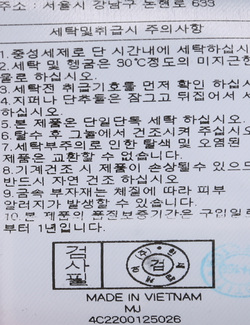 주소: 서울시 강남구 논현로 633
세탁및취급시 주의사항
1.중성세제로 단 시간내에 세탁하십시
2.세탁 및 헹굼은 30℃정도의 미지근한
물로 하십시오.
3.세탁전 취급기호를 먼저 확인 하십시
4.지퍼나 단추들은 잠그고 뒤집어서 세
하십시오
5.본 제품은 단일단독 세탁 하십시오.
6.탈수 후 그늘에서 건조시켜 주십시오
7.세탁부주의로 인한 탈색 및 오염된
제품은 교환할 수 없습니다.
8.기계건조 시 제품이 손상될수 있으
반드시 자연 건조 하십시오.
9.금속 부자재는 체질에 따라 피부
알러지가 발생할 수 있습니다.
10.본 제품의 품질보증기간은 구입일로
부터 1년입니다.
검사필
검
MADE IN VIETNAM
MJ
4C2200125026